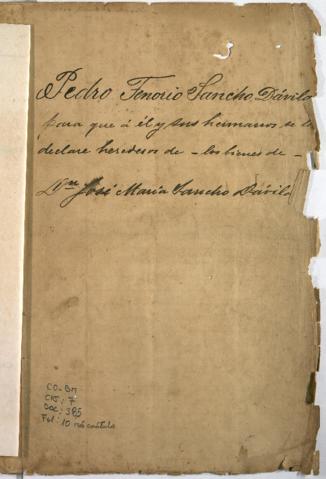 Pedro Tenorio Sancho Dávila
para que á él y sus hermanos se le
declare herederos de - los bienes de -
Dn José María Sancho Dávila
CO-BM
CAJ: 7
DOC: 385
Fol: 10 más carátula